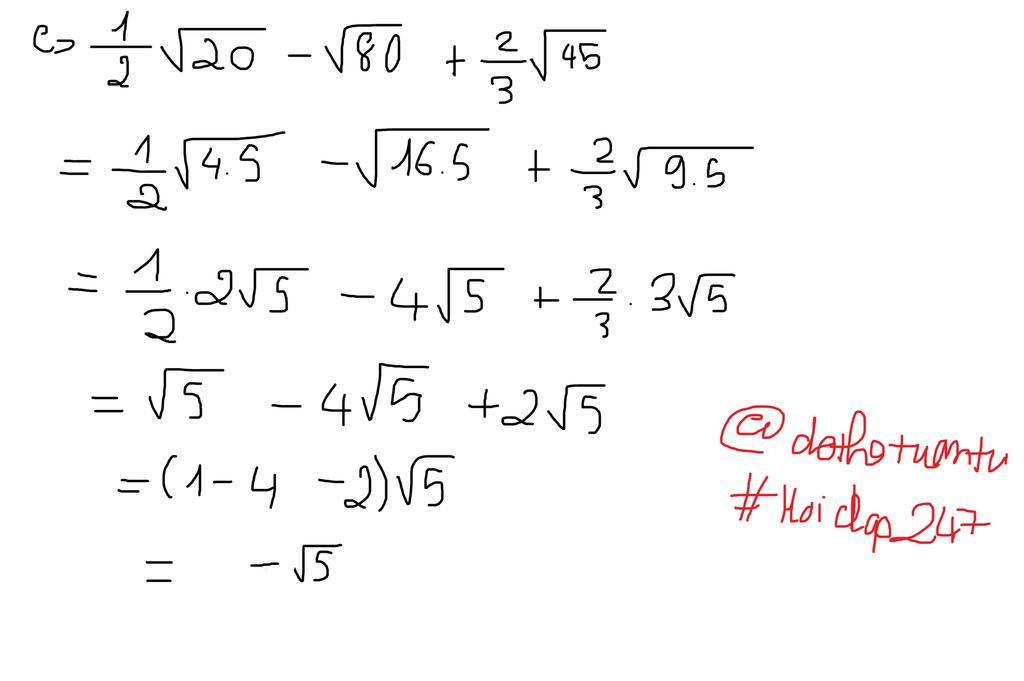 c> 1/2 √20 - √80 + 2/3 √45
= 1/2 √4.5 - √16.5 + 2/3 √9.5
= 1/2 . 2√5 - 4√5 + 2/3 . 3√5
= √5 - 4√5 + 2√5
= (1 - 4 - 2)√5
= - √5
@dothotuantu
#Hoidap_247